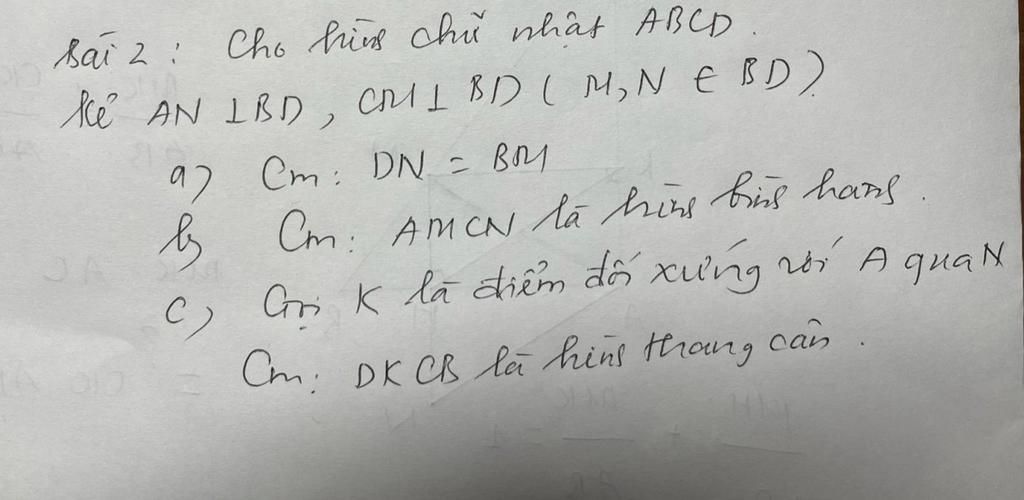 Bài 2: Cho hình chữ nhật ABCD.
Kẻ AN ⊥ BD, CM ⊥ BD (M, N ∈ BD)
a) Cm: DN = BM
b) Cm: AMCN là hình bình hang.
c) Gọi K là điểm đối xứng với A qua N
Cm: DKCB là hình thang cân.